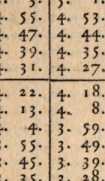 4. 55. 4. 53.
4. 47. 4. 44.
4. 39. 4. 35.
4. 31. 4. 27.
4. 22. 4. 18.
4. 13. 4. 8.
4. 4. 3. 59.
3. 55. 3. 49.
3. 45. 3. 39.
3. 35. 3. 28.